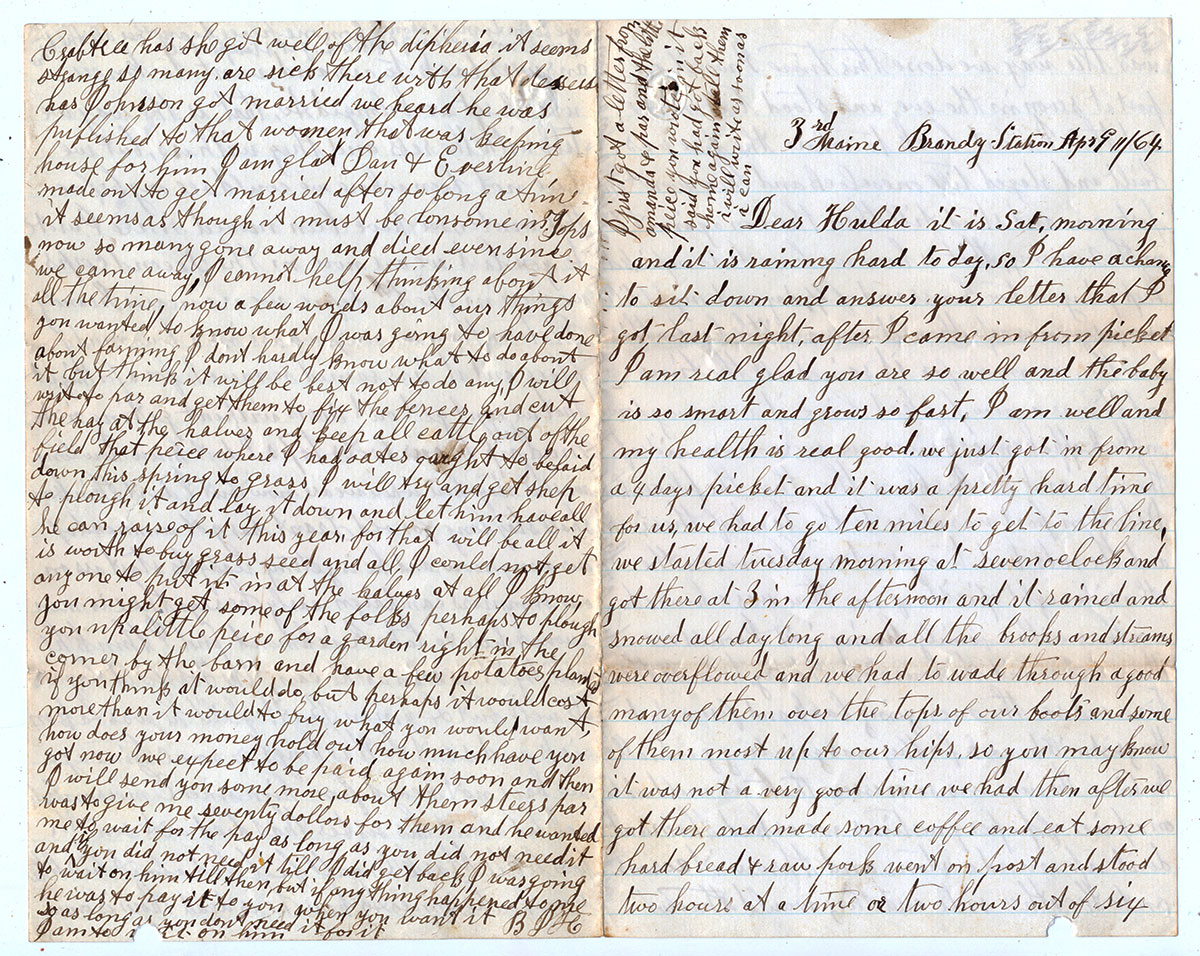 3rd Maine Brandy Station Apr 9 11/64
Dear Hulda it is Sat, morning
and it is raining hard to day, so I have a chanc
to sit down and answer your letter that I
got last night, after I came in from picket
I am real glad you are so well and the baby
is so smart and grows so fast, I am well and
my health is real good. we just got in from
a 4 days picket and it was a pretty hard time
for us, we had to go ten miles to get to the line,
we started tuesday morning at seven oclock and
got there at 3 in the afternoon and it rained and
snowed all day long and all the brooks and streams
were overflowed and we had to wade through a good
many of them over the tops of our boots and some
of them most up to our hips. so you may know
it was not a very good time we had then after we
got there and made some coffee and eat some
hard bread & raw pork went on post and stood
two hours at a time or two hours out of six
Crabtree has she got well of the diptheria it seems
strange so many are sick there with that
has Johnson got married we heard he was
published to that women that was keeping
house for him, I am glad Dan & Everline
made out to get married after so long a time
it seems as though it must be lonsome in Tops
now so many gone away and died even since
we came away, I cannot help thinking about it
all the time, now a few words about our things
you wanted to know what I was going to have done
about farming I dont hardly know what to do about
it but think it will be best not to do any, I will
write to par and get them to fix the fences, and cut
the hay at the halves and keep all cattle out of the
field that peice where I had oates ought to be laid
down this spring to grass, I will try and get shep
to plough it and lay it down and let him have all
he can raise of it this year for that will be all it
is worth to buy grass seed and all, I could not get
anyone to put it in at the halves at all I know,
you might get some of the folks perhaps to plough
you up a little peice for a garden right in the
corner by the barn and have a few potatoes planted
if you think it would do, but perhaps it would cost
more than it would to buy what you would want,
how does your money hold out how much have you
got now we expect to be paid again soon and then
I will send you some more, about them steers par
was to give me seventy dollors for them and he wanted
me to wait for the pay as long as you did not need it
and if you did not need it till I did get back, I was going
to wait on him till then, but if any thing happened to me
he was to pay it to you, when you want it B J H
so as long as you dont need it for it
I am to on him
I jist got a letter from
amanda & par and the little
peice you wrote in it
said you had got back
home again tell them
i will write as soon as
i can